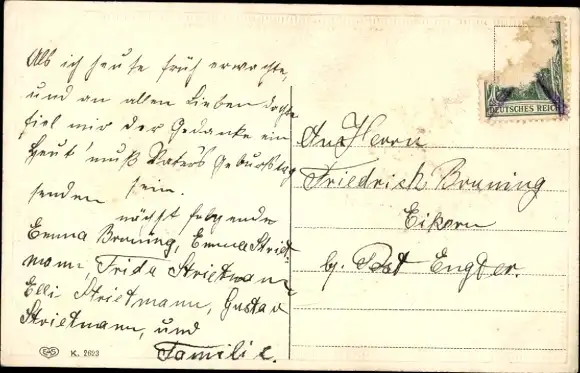 Als ich heute früh erwachte,
und an allen Lieben dachte
fiel mir der Gedanke ein
Heut' muß Vater's Geburtstag
sein.
senden nächst folgende
Emma Bruning, Emma Striet-
mann, Frida Strietmann
Elli Strietmann, Gustav
Strietmann, und
Familie.
K. 2623
DEUTSCHES REICH
An Herrn
Friedrich Bruning
Eikern
bz. Post Engter.